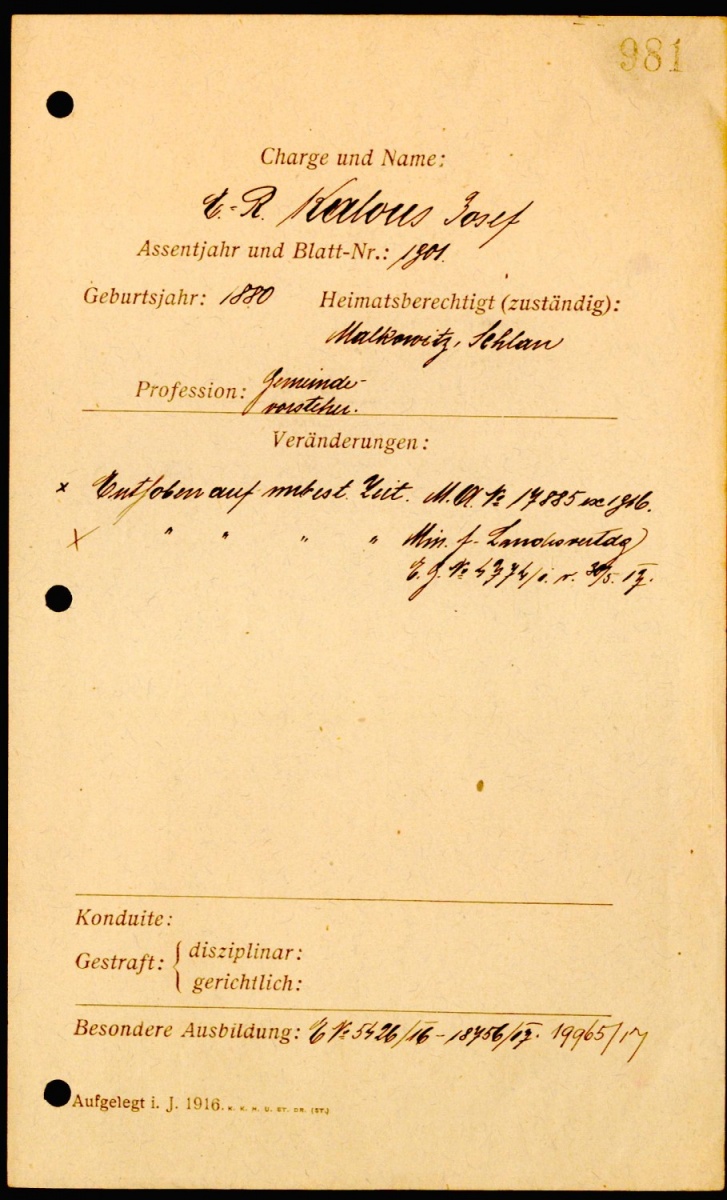 981
Charge und Name:
E.-R. Kalous Josef
Assentjahr und Blatt-Nr.: 1901.
Geburtsjahr: 1880 Heimatsberechtigt (zuständig):
Malkowitz, Schlan
Profession: Gemeinde-
vorsteher.
Veränderungen:
x Enthoben auf unbest. Zeit. M.A. № 17885 ex 1916.
x " " " " Min. f. Landesvertdg
E. J. № 4374/ 30/5. 17.
Konduite:
Gestraft: { disziplinar:
gerichtlich:
Besondere Ausbildung: E № 5426/16 - 18756/17. 19965/17
Aufgelegt i. J. 1916. K. K. H. U. ST. DR. (ST.)